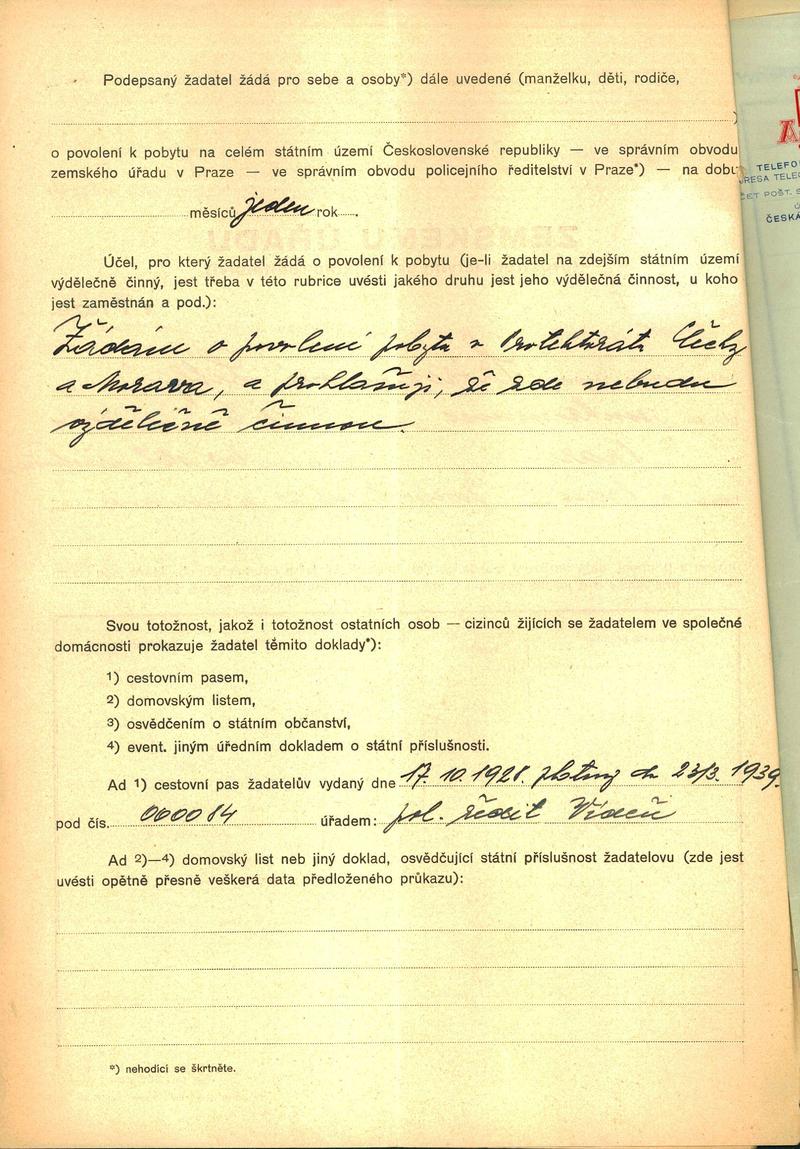 Podepsaný žadatel žádá pro sebe a osoby*) dále uvedené (manželku, děti, rodiče,
)
o povolení k pobytu na celém státním území Československé republiky — ve správním obvodu
zemského úřadu v Praze — ve správním obvodu policejního ředitelství v Praze*) — na dobu
měsíců jeden rok
Účel, pro který žadatel žádá o povolení k pobytu (je-li žadatel na zdejším státním území
výdělečně činný, jest třeba v této rubrice uvésti jakého druhu jest jeho výdělečná činnost, u koho
jest zaměstnán a pod.):
Žádám o povolení pobytu v Protektorátu Čechy
a Morava, a prohlašuji, že zde nebudu
výdělečně činnou.
Svou totožnost, jakož i totožnost ostatních osob — cizinců žijících se žadatelem ve společné
domácnosti prokazuje žadatel těmito doklady*):
1) cestovním pasem,
2) domovským listem,
3) osvědčením o státním občanství,
4) event. jiným úředním dokladem o státní příslušnosti.
Ad 1) cestovní pas žadatelův vydaný dne 17. 10. 1928. platný do 23/3. 1939.
pod čís. 060084 úřadem: pol. ředit Vídeň
Ad 2)—4) domovský list neb jiný doklad, osvědčující státní příslušnost žadatelovu (zde jest
uvésti opětně přesně veškerá data předloženého průkazu):
*) nehodící se škrtněte.
A
TELEFO
RESA TELE
ČET POŠT. S
ČESKÁ